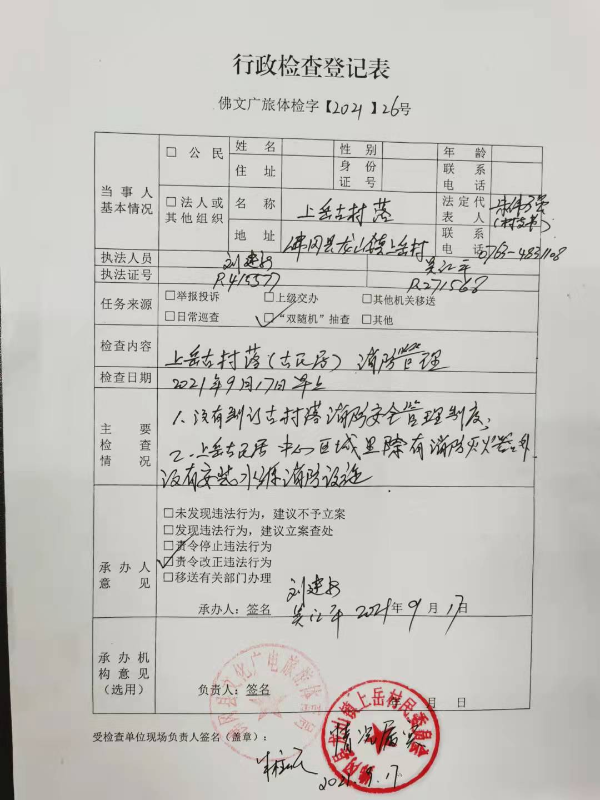 行政检查登记表
佛文广旅体检字【2021】26号
当事人基本情况 □公民 姓名 性别 年龄
住址 身份证号 联系电话
□法人或其他组织 名称 上岳古村落 法定代表人 (村支书)
地址 佛冈县龙山镇上岳村 联系电话 0763-4831108
执法人员 刘建 吴江平
执法证号 R415577 R271568
任务来源 □举报投诉 □上级交办 □其他机关移送
□日常巡查 ☑“双随机”抽查 □其他
检查内容 上岳古村落(古民居)消防管理
检查日期 2021年9月17日早上
主要检查情况 1、没有制订古村落消防安全管理制度;
2、上岳古民居中心区域里除有消防灭火器外
没有安装水体消防设施
承办人意见 □未发现违法行为,建议不予立案
□发现违法行为,建议立案查处
□责令停止违法行为
☑责令改正违法行为
□移送有关部门办理
刘建
承办人:签名 吴江平 2021年9月17日
承办机构意见(选用)
负责人:签名 年 月 日
受检查单位现场负责人签名(盖章): 情况属实
2021.9.17